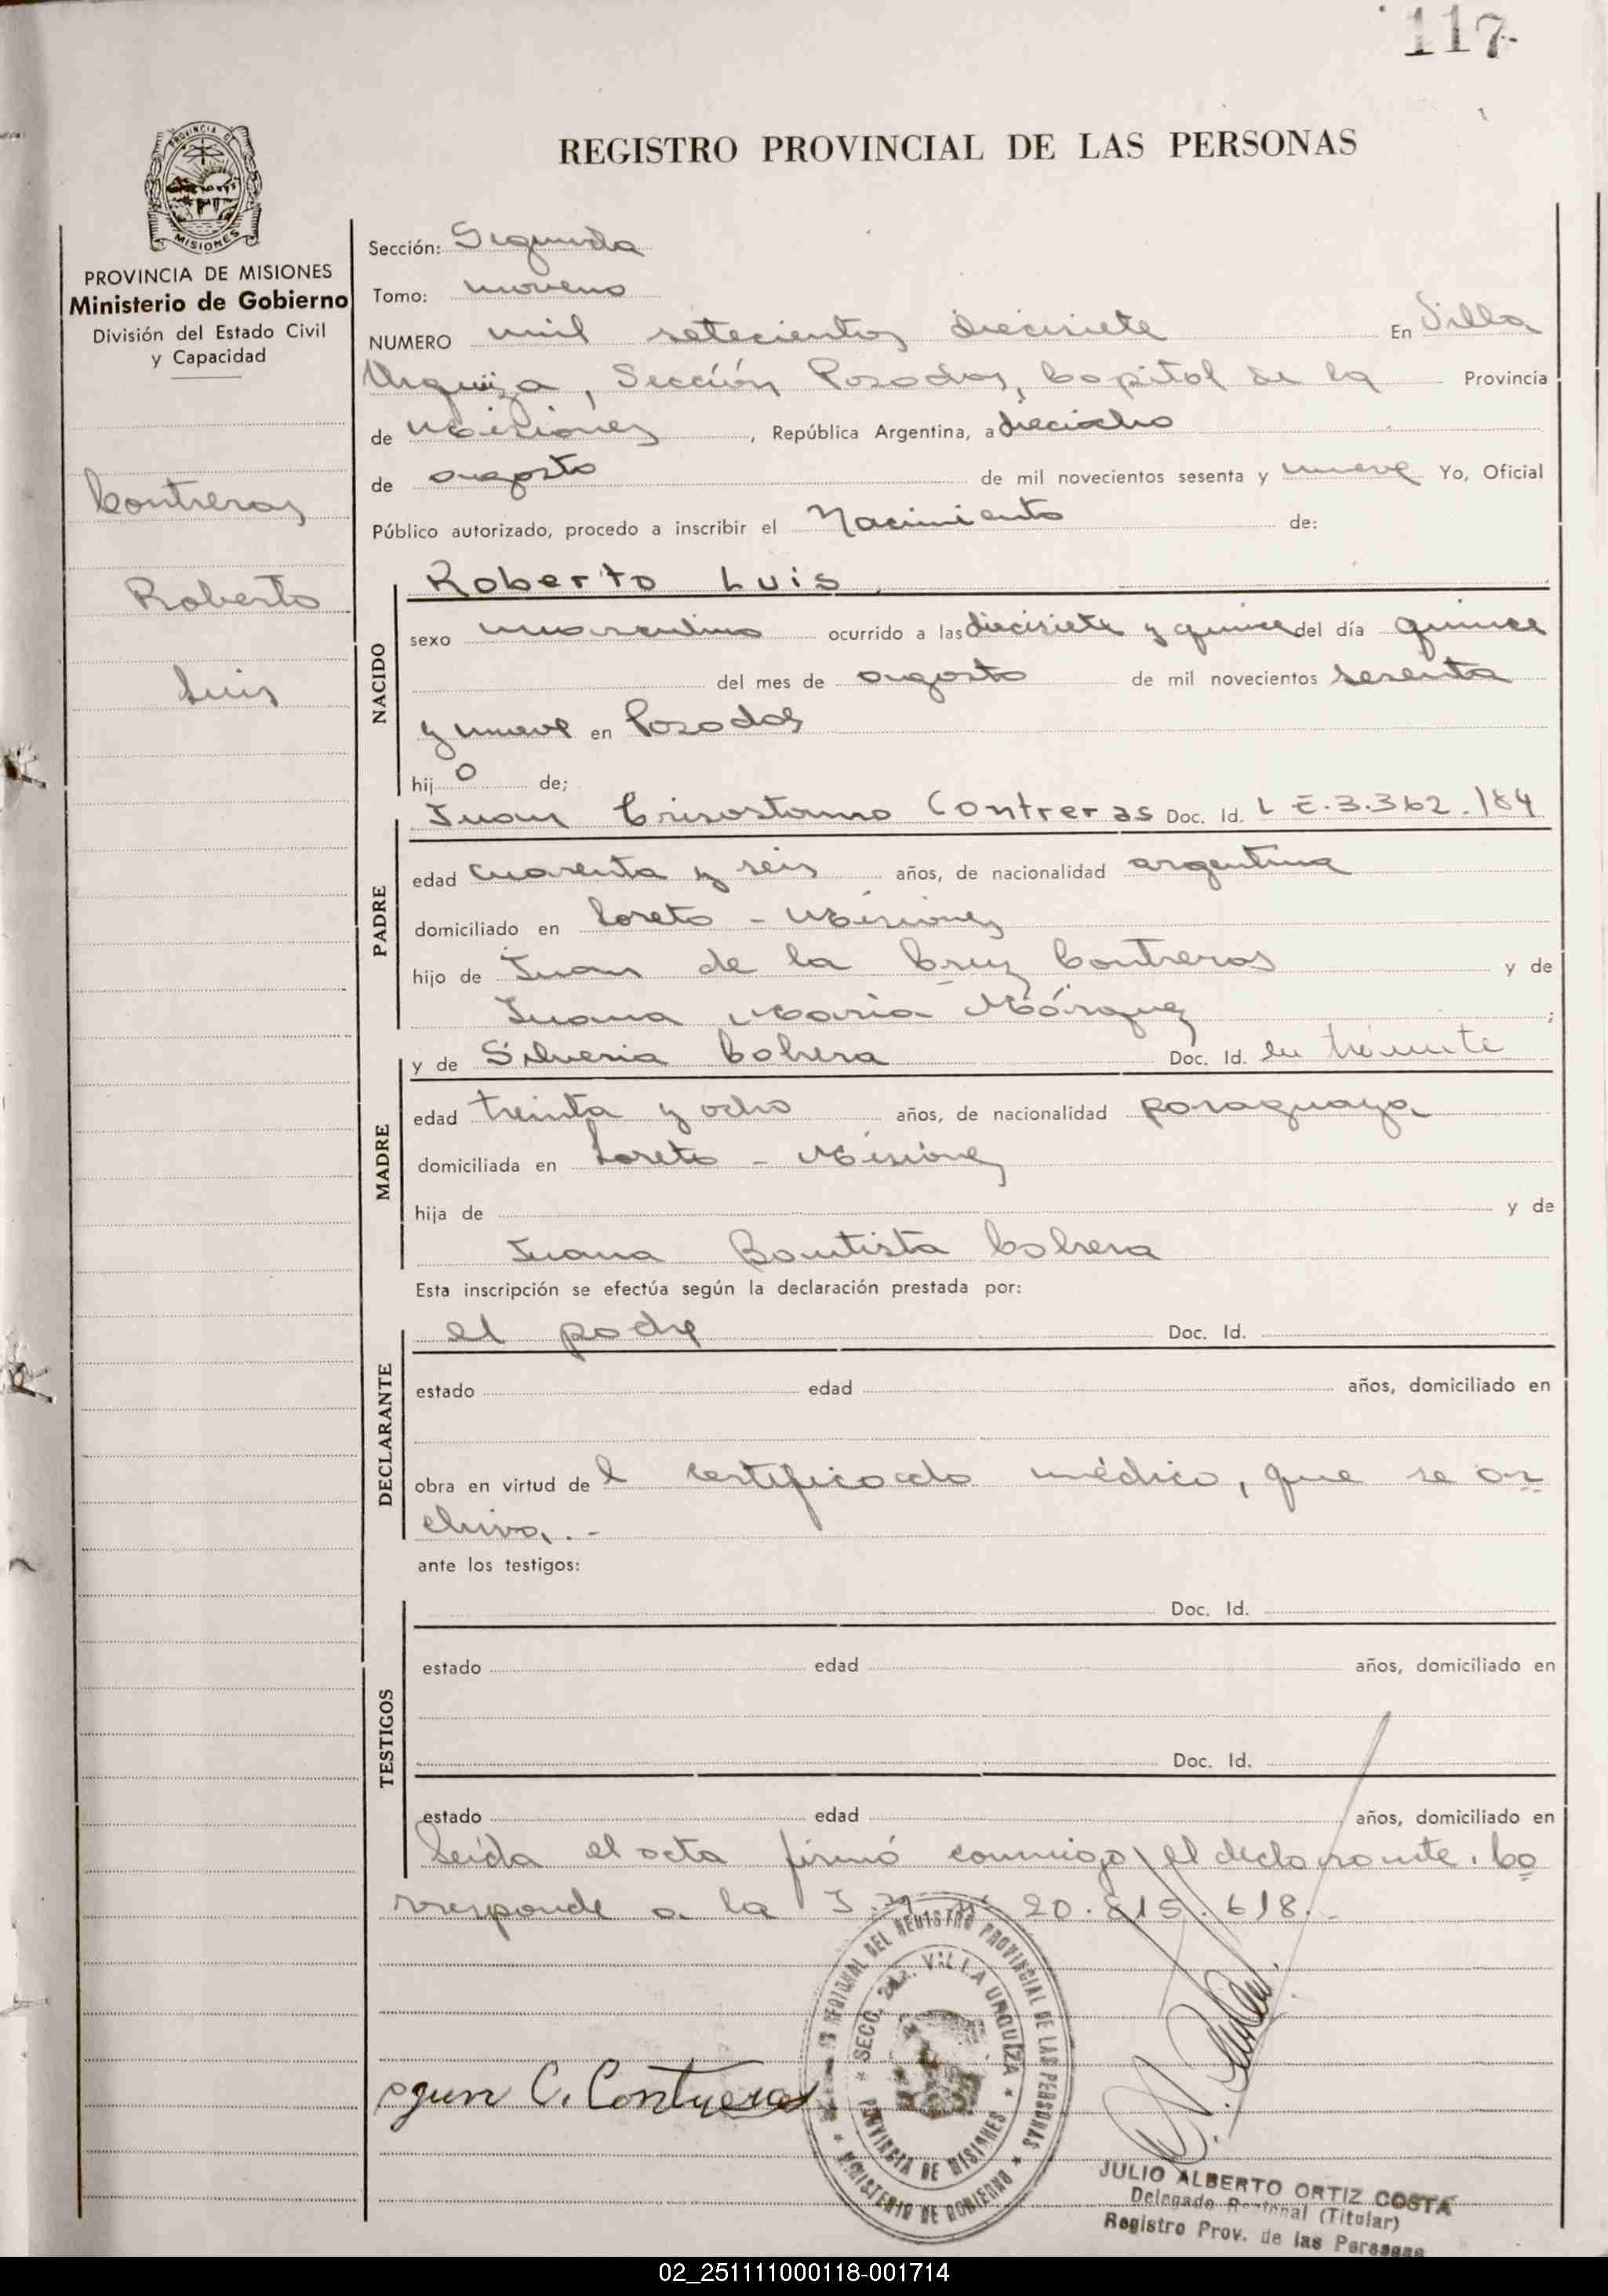 117
REGISTRO PROVINCIAL DE LAS PERSONAS
PROVINCIA DE MISIONES
Ministerio de Gobierno
División del Estado Civil
y Capacidad
Contreras
Roberto
Luis
Sección: Segunda
Tomo: noveno
NUMERO mil setecientos diecisiete En Villa
Urquiza, Sección Posadas, Capital de la Provincia
de Misiones, República Argentina, a dieciocho
de agosto de mil novecientos sesenta y nueve Yo, Oficial
Público autorizado, procedo a inscribir el Nacimiento de:
NACIDO
Roberto Luis
sexo masculino ocurrido a las diecisiete y quince del día quince
del mes de agosto de mil novecientos sesenta
y nueve en Posadas
hijo de;
PADRE
Juan Crisostomo Contreras Doc. Id. L E.3.362.184
edad cuarenta y seis años, de nacionalidad argentina
domiciliado en Loreto - Misiones
hijo de Juan de la Cruz Contreras y de
Juana María Márquez;
MADRE
y de Silveria Cabrera Doc. Id. en trámite
edad treinta y ocho años, de nacionalidad paraguaya
domiciliada en Loreto - Misiones
hija de y de
Juana Bautista Cabrera
Esta inscripción se efectúa según la declaración prestada por:
DECLARANTE
el padre Doc. Id.
estado edad años, domiciliado en
obra en virtud del certificado médico, que se ar
chiva.-
ante los testigos:
TESTIGOS
Doc. Id.
estado edad años, domiciliado en
Doc. Id.
estado edad años, domiciliado en
Leída el acta firmó conmigo el declarante. Co
rresponde a la 20.815.618.-
REGIONAL DEL REGISTRO PROVINCIAL DE LAS PERSONAS
SECC. 2da. VILLA URQUIZA
PROVINCIA DE MISIONES
MINISTERIO DE GOBIERNO
Juan C. Contreras
JULIO ALBERTO ORTIZ COSTA
Delegado Regional (Titular)
Registro Prov. de las Personas
02_251111000118-001714